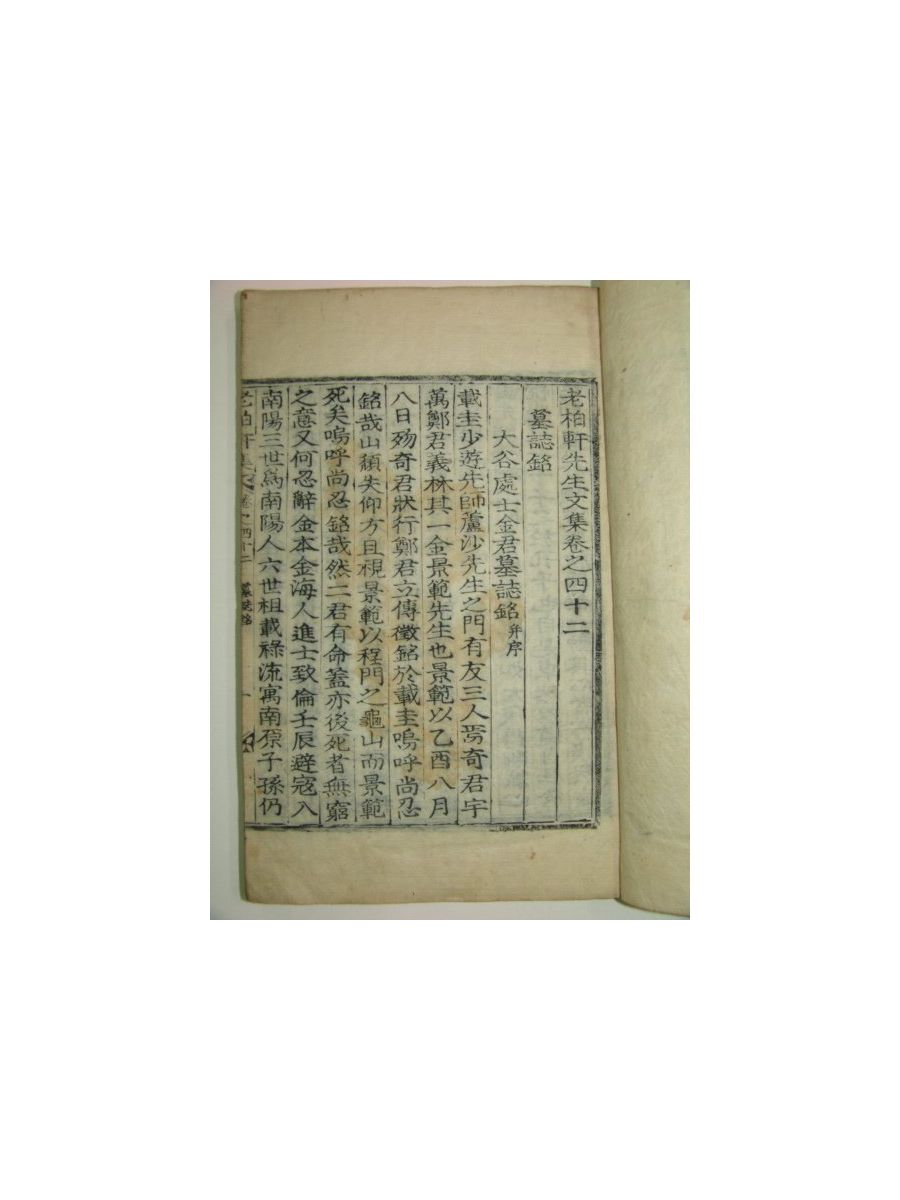 老柏軒先生文集卷之四十二
墓誌銘
大谷處士金君墓誌銘 幷序
載圭少遊先師蘆沙先生之門有友三人焉奇君宇
萬鄭君義林其一金景範先生也景範以乙酉八月
八日殀奇君狀行鄭君立傳徵銘於載圭嗚呼尚忍
銘哉山頹失仰方且視景範以程門之龜山而景範
死矣嗚呼尚忍銘哉然二君有命蓋亦後死者無窮
之意又何忍辭金本金海人進士致倫壬辰避寇入
南陽三世爲南陽人六世祖載祿流寓南原子孫仍
老柏軒集 卷之四十二 墓誌銘 一